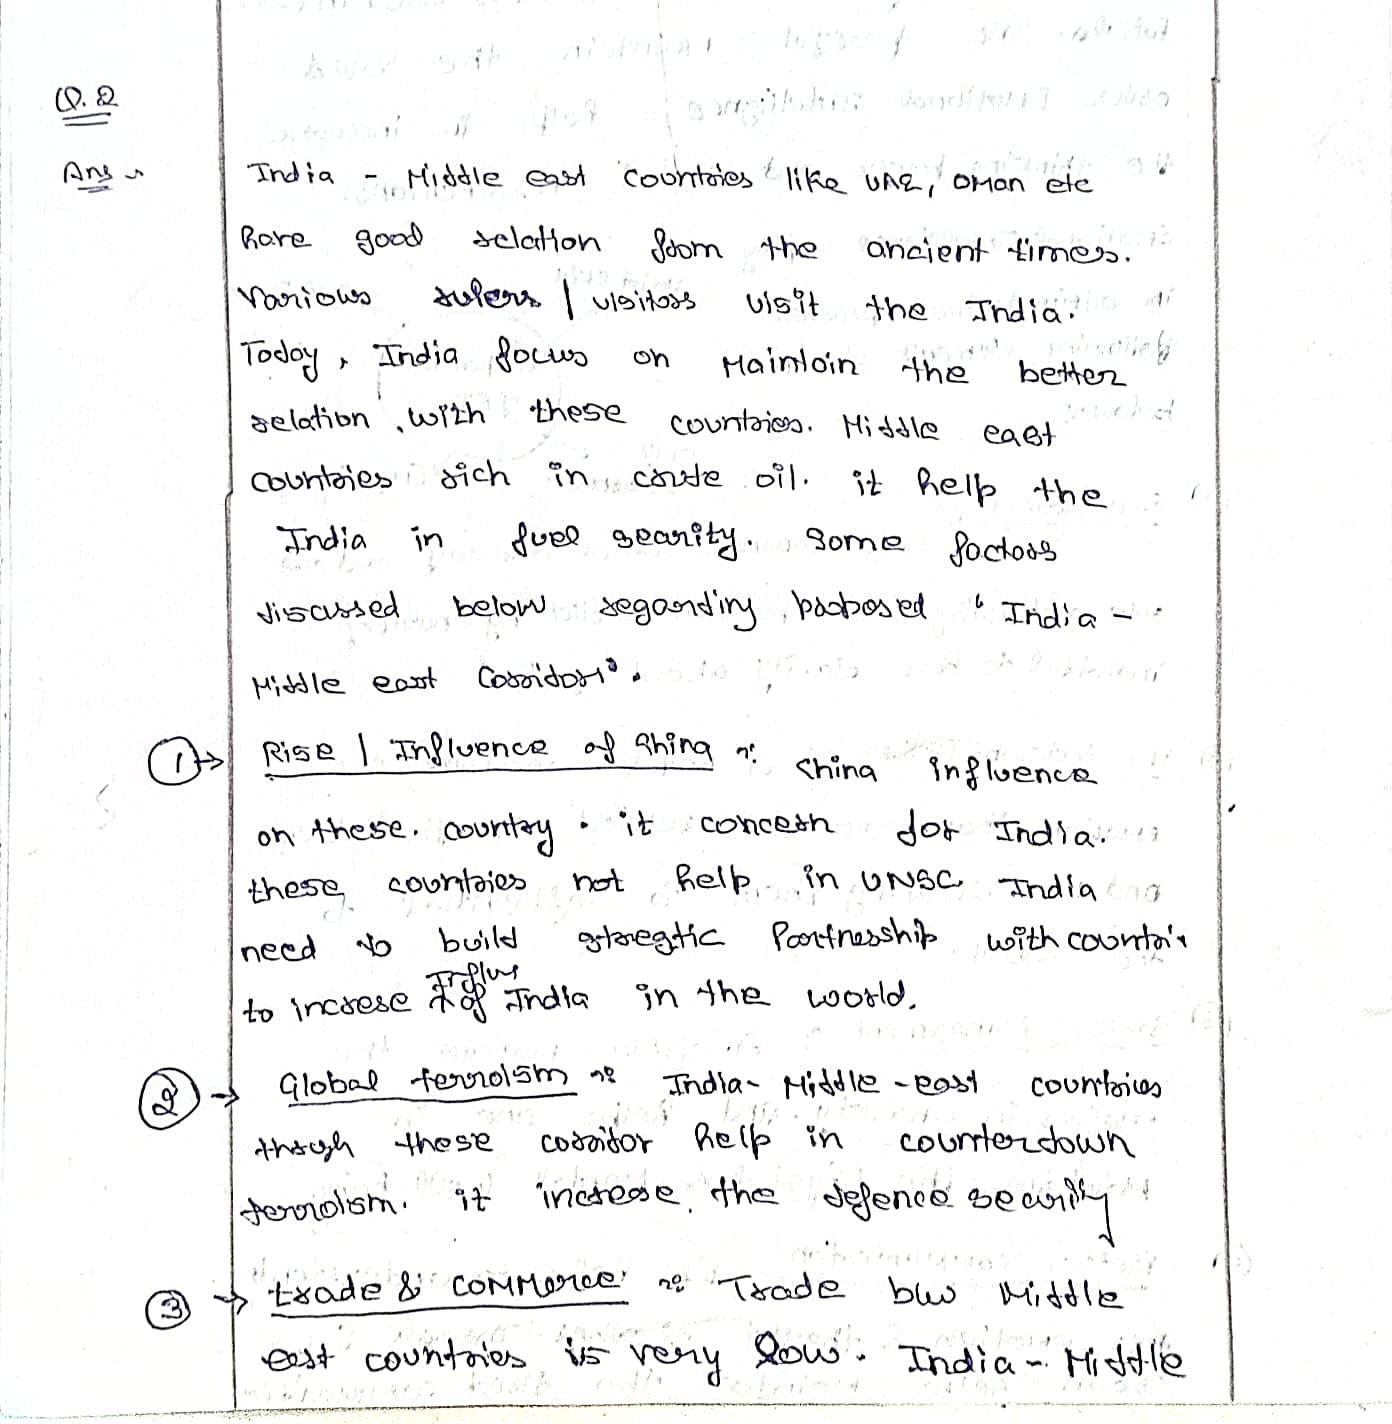 Q.2
Ans India - Middle east countries like UAE, Oman etc
have good relation from the ancient times.
Various rulers / visitors visit the India.
Today, India focus on Maintain the better
relation with these countries. Middle east
countries rich in crude oil. it help the
India in fuel security. Some factors
discussed below regarding proposed "India -
Middle east Corridor".
① → Rise / Influence of China :- China influence
on these country. it concern for India.
these countries not help in UNSC India
need to build stregtic Partnership with
to increse Influs of India in the world.
② → Global terrolsm :- India - Middle - east countries
through these corridor help in counterdown
terrolism. it increase the defence security
③ → trade & commerce :- Trade b/w Middle
east countries is very low. India - Middle